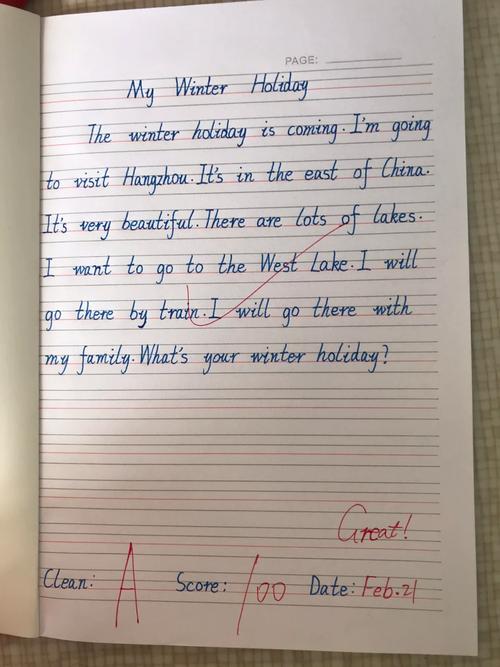 PAGE:
My Winter Holiday
The winter holiday is coming. I'm going
to visit Hangzhou. It's in the east of China.
It's very beautiful. There are lots of lakes.
I want to go to the West Lake. I will
go there by train. I will go there with
my family. What's your winter holiday?
Great!
Clean: A Score: 100 Date: Feb. 21